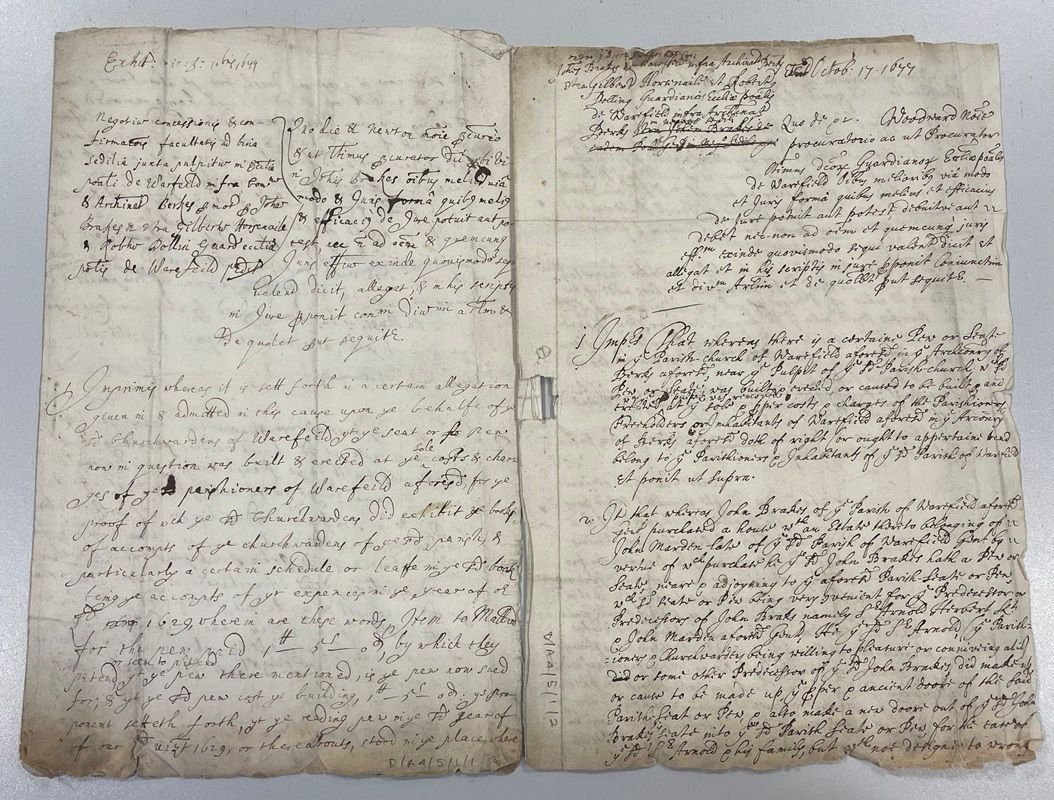 Exhit.
Negotiu concessionis & con-
firmatois facultatis ad bina
sedilia juxta pulpitu in Ecclia
poali de Warfeild infra Com
& Archinat Berkes p mot p John
Brakes n Vra Gilbertu Horsenaile
& Robtu Bollin Guard ecclia
potis de Warefeild pdict
Quo die & Newton noie pcurio
& ut ltimus pcurator dti
Johis Brakes oibus melio via
modo & Juris forma quibg melig
& efficacig de Jure potuit aut po
test nec n ad oem & quemcunq
Juris effm exinde quovismodo
valend dicit, allegat & in his scriptis
in Jure pponit conm divm a Arlm &
De quolet put sequitr.
1 Imprimis whereas it is sett forth in a certain allegation
given in & admitted in this cause upon ye behalfe of ye
sd Churchwardens of Warefeild yt ye seat or pew
now in question was built & erected at ye sole costs & char
ges of ye sd parishioners of Warefeild aforesd for ye
proof of wch ye sd Churchwardens did exhibit ye books
of accompts of ye churchwardens of ye sd parish, &
particularly a certain schedule or leafe in ye sd book
being ye accompts of yr expences in ye year of
1629 wherein are these words Item to Mathew
for the pew paid 1 5 0d, by which they
or seem to pretend
ptend yt ye pew there mentioned, is ye pew now sued
for, & yt ye sd pew cost ye building, 5s 0d: ye pro
ponent setteth forth, yt ye reading pew in ye sd year of
of our 1629, or thereabouts, stood in ye place where
D/A4/5/1/1
Johis Brakes de Warefeild infra Archinat Berk
Vra Gilbert Horsenaile et Robertu
Bolling Guardianos Ecclie poalis
de Warefeild infra Archinat
Berks
Octob. 17. 1677
Quo die pr. Woodward Noie
procuratorio ac ut Procurator
ltimus dcoru Guardianoru Ecclie poalis
de Warefeild Oibus melioribs via modo
et Juris forma quibus melius et efficacius
de jure potuit aut potest debuitve aut
debet nec-non ad oem et quemcunq juris
effm exinde quovismodo sequi valent dicit et
allegat et in his scriptis in jure pponit conjunctim
et divm Arlim et de quolet put sequitr.
1 Imprs That whereas there is a certaine Pew or Seate
in ye Parish-church of Warefeild aforesd in ye Archdeonry of
Berks aforesd, near ye Pulpit of ye sd Parish-church, wch sd
Pew or Seate was built p erected or caused to be built p and
erected at ye sole p per costs p charges of the Parishioners
Freeholders or Inhabitants of Warefeild aforesd in ye Arconry
of Berks aforesd doth of right or ought to appertaine and
belong to ye Parishioners p Inhabitants of ye sd Parish of Warfeild
Et ponit ut supra.
2 It that whereas John Brakes of ye Parish of Warefeild aforesd
Gent purchased a house wth an Estate thereto belonging of
John Marden late of ye sd Parish of Warefeild Gent by
vertue of wch purchase he ye sd John Brakes hath a Pew or
Seate neare p adjoyning to ye aforesd Parish Seate or Pew
wch sd Seate or Pew being very pvenient for ye Predecessor or
Predecessors of John Brakes namely Sr Arnold Herbert Kt
p John Marden aforesd Gent. He ye sd Sr Arnold, (ye Parish-
ioners p Churchwardens being willing to pleasure or conniveing at it
did or some other Predecessor of ye sd John Brakes did make up
or cause to be made up, ye pper p ancient doore of the said
Parish-Seat or Pew, p also make a new doore out of ye sd John
Brakes Seate into ye sd Parish Seate or Pew for the ease of
ye sd Sr Arnold p his family, but not designe to wrong
D/A4/5/1/2